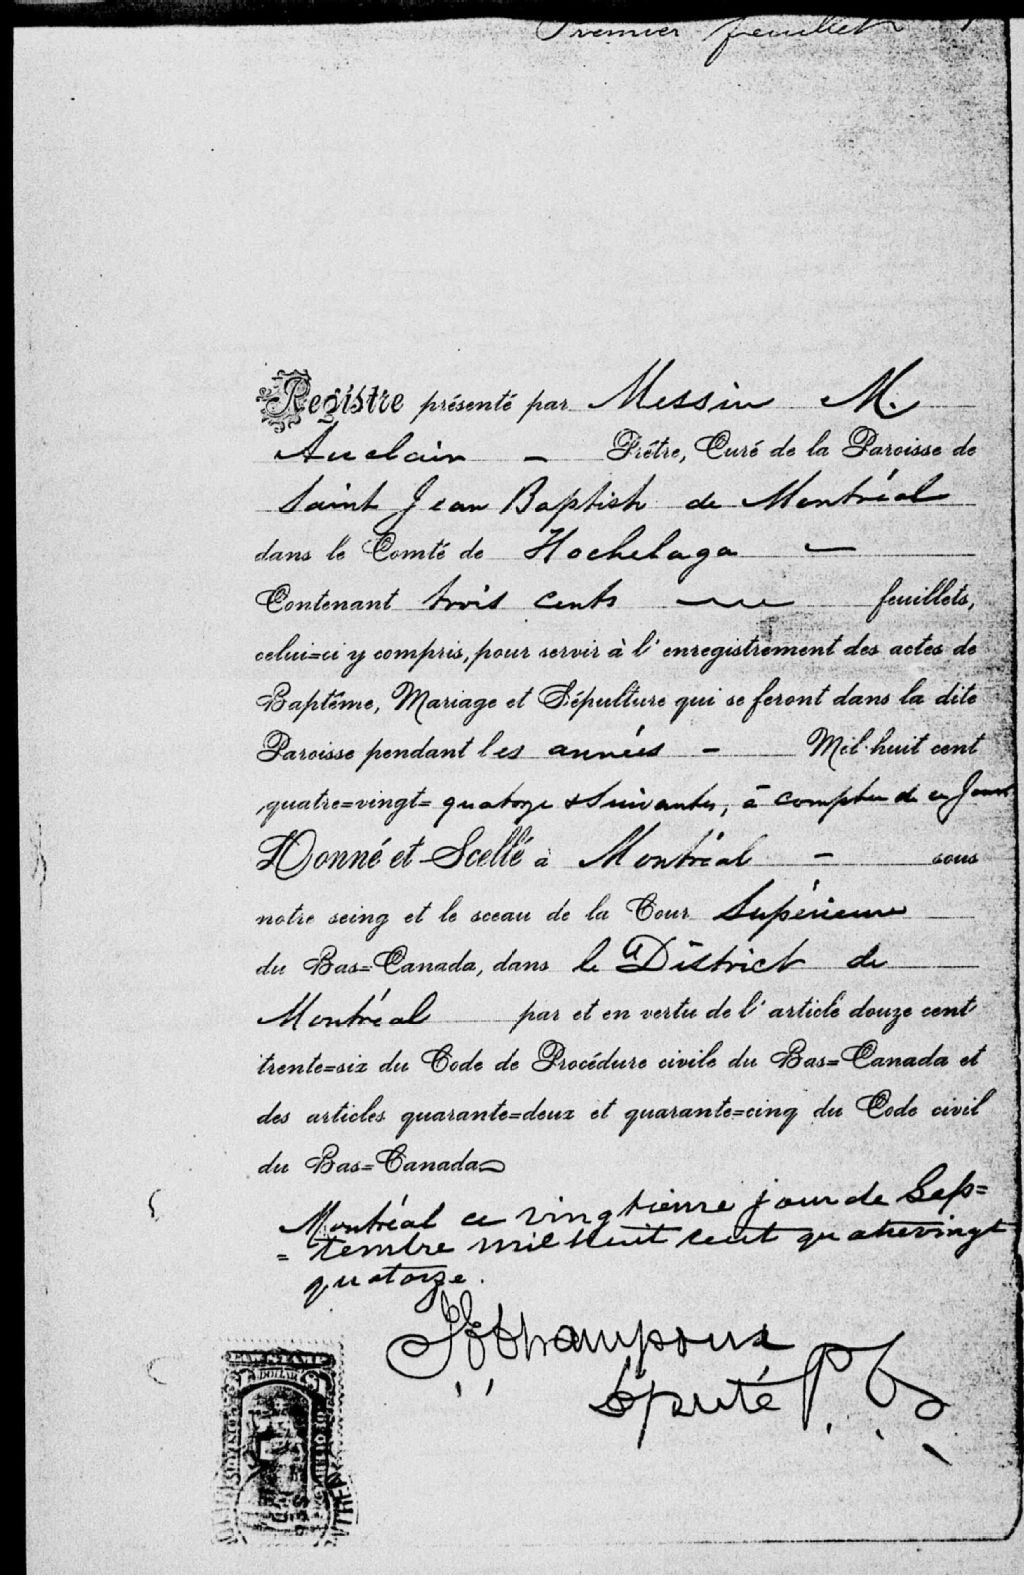 Premier feuillet
Registre présenté par Messire M.
Auclair – Prêtre, Curé de la Paroisse de
Saint Jean Baptiste de Montréal
dans le Comté de Hochelaga –
Contenant trois cents feuillets,
celui=ci y compris, pour servir à l'enregistrement des actes de
Baptême, Mariage et Sépulture qui se feront dans la dite
Paroisse pendant les années – Mil-huit cent
quatre=vingt= quatorze & suivantes, à compter de ce jour.
Donné et Scellé à Montréal – sous
notre seing et le sceau de la Cour Supérieure
du Bas=Canada, dans le District de
Montréal par et en vertu de l'article douze cent
trente=six du Code de Procédure civile du Bas=Canada et
des articles quarante=deux et quarante=cinq du Code civil
du Bas=Canada
Montréal ce vingtième jour de Sep=
= tembre mil huit cent quatrevingt
quatorze.
Champoux
Député P.
DOLLAR